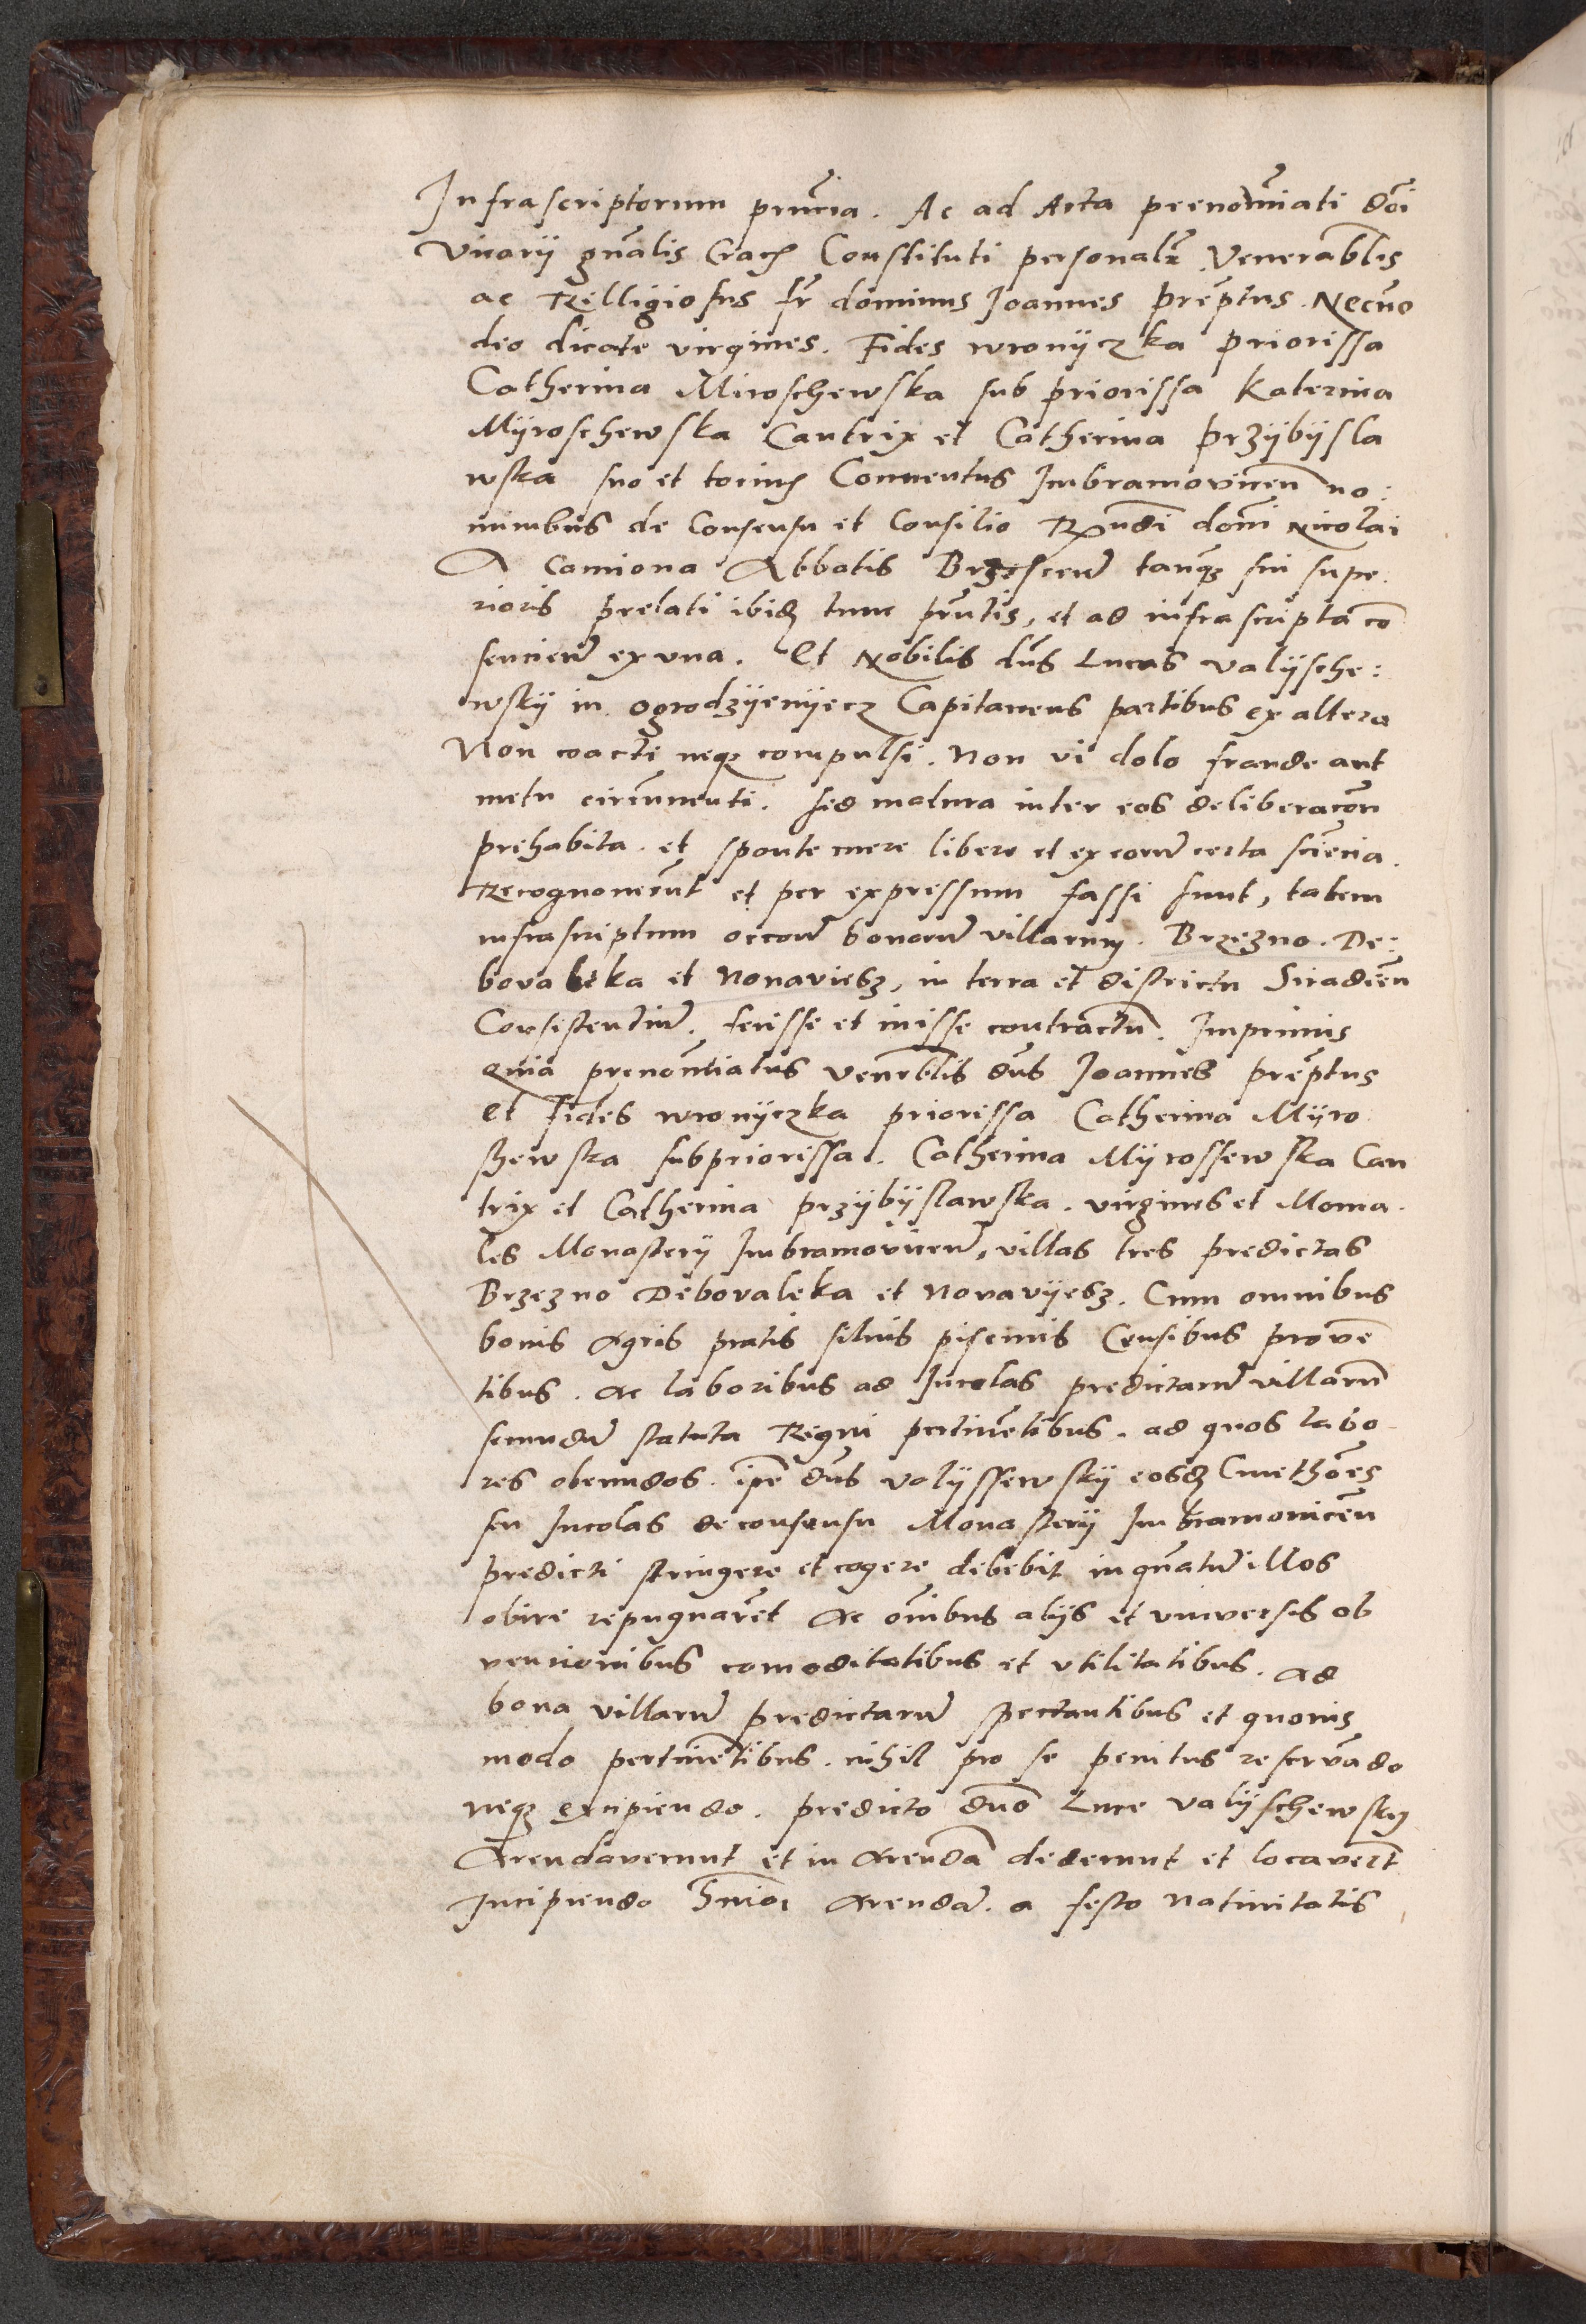 Infrascriptorum pñcia. Ac ad Acta prenominati dñi
Vicarÿ gñalis Crac̃ Constituti personalr̃ Venerablis
ac Relligiosus fr̃ dominus Joannes prep̃tus. Necnõ
deo dicate virgines. Fides wronÿczka priorissa
Catherina Miroschewska sub priorissa Katerina
Mÿroschewska Cantrix et Catherina przÿbÿsla
wska suo et totius Conventus Imbramovicen̄ no:
minibus de Consensu et Consilio Rñdi domi Nicolai
A Camiona Abbatis Brzescen̄ tanq̃ sui supe.
rioris prelati ibid tunc pñtis, et ad infrascripta cõ
sencien̄ ex una. Et Nobilis dñs Lucas valÿsche:
wskÿ in ogrodzÿenÿecz Capitaneus partibus ex altera
Non coacti neqꝫ compulsi. Non vi dolo fraude aut
metu circũventi. sed matura inter eos deliberacõn
prehabita. et sponte mere libere et ex eorum certa sciẽcia.
Recognoverũt et per expressum fassi sunt, talem
infrascriptum bonorum villarum. Brzezno. De:
bovaleka et Novaviesz, in terra et districtu Siradieñ
Consistentium. fecisse et inisse contractũ. Imprimis
Quia prenom̃iatus veneblis dñs Joannes prep̃tus
et Fides wronÿczka priorissa Catherina Mÿro
shewska subpriorissa. Catherina Mÿrossewska Can
trix et Catherina przÿbÿslawska. virgines et Monia.
les Monasterÿ Imbramovicen̄, villas tres predictas
Brzezno Debovaleka et Novavÿesz. Cum omnibus
bonis Agris pratis silvis piscinis Censibus provẽ
tibus. Ac laboribus ad Incolas predictarum villarũ
secundum statuta Regni pertinẽtibus. ad quos labo
res obeundos. ip̃e dñs valÿssewskÿ eosd Cmethões
seu Incolas de consensu Monasterÿ Imbramovicen̄
predicti stringere et cogere debebit inq̃ntum illos
obire repugnarẽt Ac om̃ibus alÿs et universis ob
vencionibus comoditatibus et utilitatibus. Ad
bona villarum predictarum spectantibus et quovis
modo pertinẽtibus. nihil pro se penitus reservãdo
neqꝫ excipiendo. predicto dño Luce valÿschewskÿ
Arendaverunt et in Arendã dederunt et locaverũt
Incipiendo Arendam. a festo Nativitatis